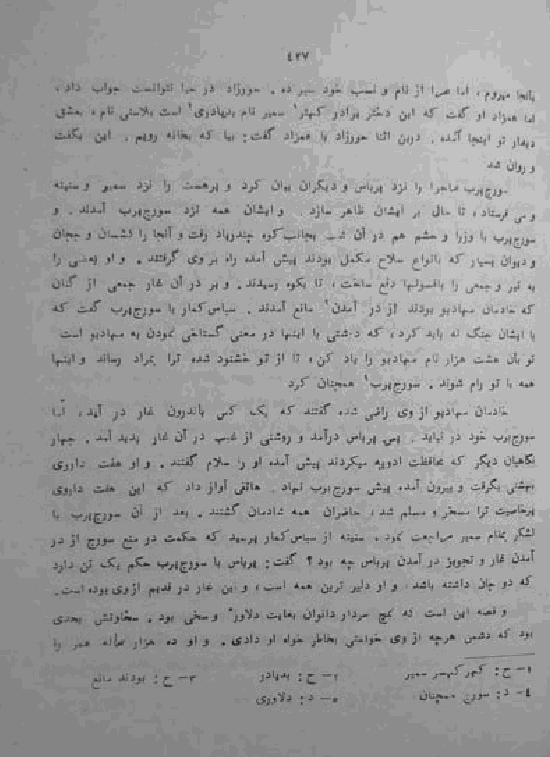 ٤٢٧
میروم، اما مرا از نام و نسب خود خبر ده. حورزاد در حیا نتوانست جواب داد،
اما همزاد او گفت که این دختر برادر کهتر سمیر نام بدیهادری است بلاستی نام، بعشق
دیدار تو اینجا آمده. درین اثنا حورزاد با همزاد گفت: بیا که بخانه رویم. این بگفت
و روان شد
سورج‌پرب ماجرا را نزد پربهاس و دیگران بیان کرد و پرهست را نزد سمیر و سنینه
و می فرستاد، تا حال بر ایشان ظاهر سازد. و ایشان همه نزد سورج‌پرب آمدند. و
سورج‌پرب با وزرا و حشم هم در آن شب بجانب کوه چندرپاد رفت و آنجا را و جهان
و دیوان بسیار که بانواع سلاح مکمل بودند پیش آمده راه بر وی گرفتند. و او بعضی را
به تیر و جمعی را بافسونها دفع ساخت، تا بکوه رسیدند. و بر در آن غار جمعی از گنان
که خادمان مهادیو بودند از در آمدن مانع آمدند. سباس‌کمار با سورج‌پرب گفت که
با ایشان جنگ نه باید کرد، که دشمنی با اینها در معنی گستاخی نمودن به مهادیو است
تو بآن هشت هزار نام مهادیو را یاد کن، تا از تو خشنود شده ترا بمراد رساند و اینها
همه با تو رام شوند. سورج‌پرب همچنان کرد
خادمان مهادیو از وی راضی شده گفتند که یک کس باندرون غار در آید، اما
سورج‌پرب خود در نیاید. پس پربهاس درآمد و روشنی از غیب در آن غار پدید آمد. چهار
نگاهبان دیگر که محافظت ادویه میکردند پیش آمده او را سلام گفتند. و او هفت داروی
بهشتی بگرفت و بیرون آمده پیش سورج‌پرب نهاد. هاتفی آواز داد که این هفت داروی
پرخاصیت ترا مسخر و مسلم شد، حاضران همه شادمان گشتند. بعد از آن سورج‌پرب با
لشکر بمقام سمیر مراجعت نمود. سنینه از سباس‌کمار پرسید که حکمت در منع سورج از در
آمدن غار و تجویز در آمدن پربهاس چه بود؟ گفت: پربهاس با سورج‌پرب حکم یک تن دارد
که دو جان داشته باشد، و او دلیر ترین همه است، و این غار در قدیم از وی بوده است.
و قصه این است که نمچ سردار دانوان بغایت دلاور و سخی بود. سخاوتش بحدی
بود که دشمن هرچه از وی خواستی بخاطر خواه او دادی. و او ده هزار ساله عمر را
۱– ح: کهتر سمیر ۲– ح: بدیهادر ۳– ح: بودند مانع
٤– د: سورج همچنان ۵– د: دلاوری